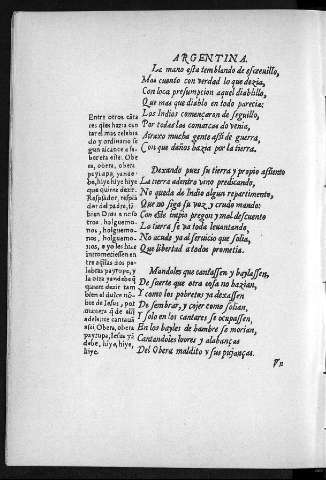 ARGENTINA.
La mano esta temblando de escreuillo,
Mas cuento con verdad lo que dezia,
Con loca presumpcion aquel diablillo,
Que mas que diablo en todo parecia:
Los Indios començaron de seguillo,
Por todas las comarcas do venia,
Atraxo mucha gente assi de guerra,
Con que daños hazia por la tierra.
Dexando pues su tierra y proprio assiento
La tierra adentro vino predicando,
No queda de Indio algun repartimento,
Que no siga su voz y crudo mando:
Con este impio pregon y mal descuento
La tierra se va toda leuantando,
No acude ya al seruicio que solia,
Que libertad a todos prometia.
Mandoles que cantassen y baylassen,
De suerte que otra cosa no hazian,
Y como los pobretes ya dexassen
De sembrar, y cojer como solian,
Y solo en los cantares se ocupassen,
En los bayles de hambre se morian,
Cantandoles loores y alabanças
Del Obera maldito y sus pujanças.
Entre otros cãta
res q̃ les hazia can
tar el mas celebra
do y ordinario se
gun alcance a sa-
ber era este. Obe
ra, obera, obera
paytupa, yando-
be, hiye hiye hiye
que quiere dezir.
Resplãdor, respla
dor del padre, tã
bien Dios a noso
tros, holguemo-
nos, holguemo-
nos, holguemo-
nos, a yo les hize
intromeniessen en
tre aq̃llas dos pa-
labras paytupa, y
la otra yandobe q̃
quiere dezir tam
bien el dulce nõ-
bre de Iesus, por
manera q̃ de alli
adelante cantauã
assi Obera, obera
paytupa, Iesus yã
debe, hiye, hiye,
hiye.